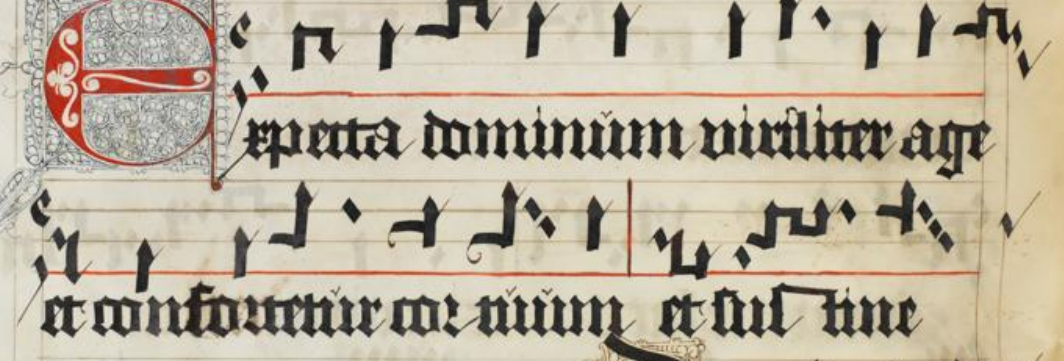 Expecta dominum viriliter age
et confortetur cor tuum et sustine